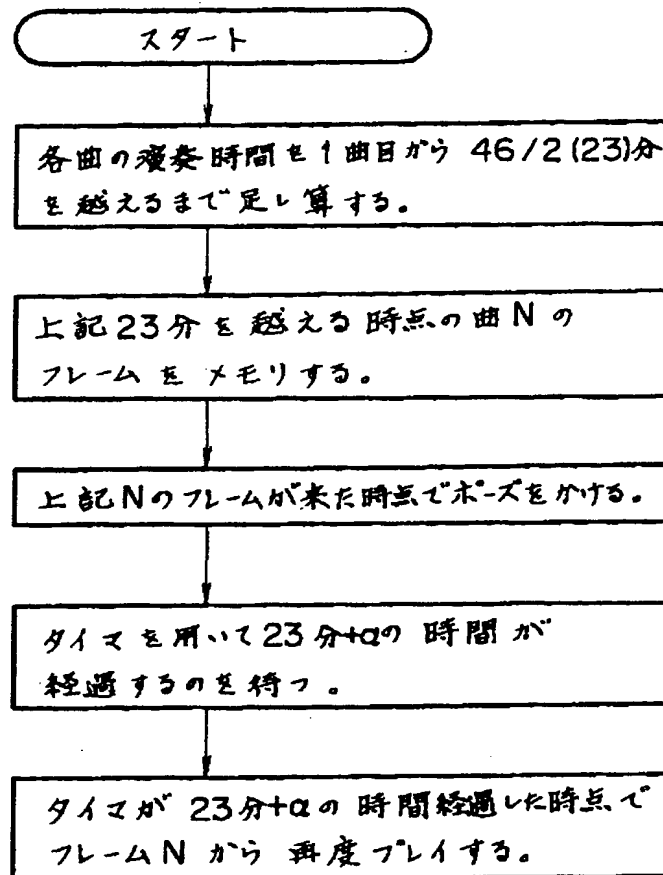 スタート
各曲の演奏時間を1曲目から 46/2(23)分
を越えるまで足し算する。
上記23分を越える時点の曲Nの
フレームをメモリする。
上記Nのフレームが来た時点でポーズをかける。
タイマを用いて23分+αの時間が
経過するのを待つ。
タイマが 23分+αの時間経過した時点で
フレームN から 再度プレイする。